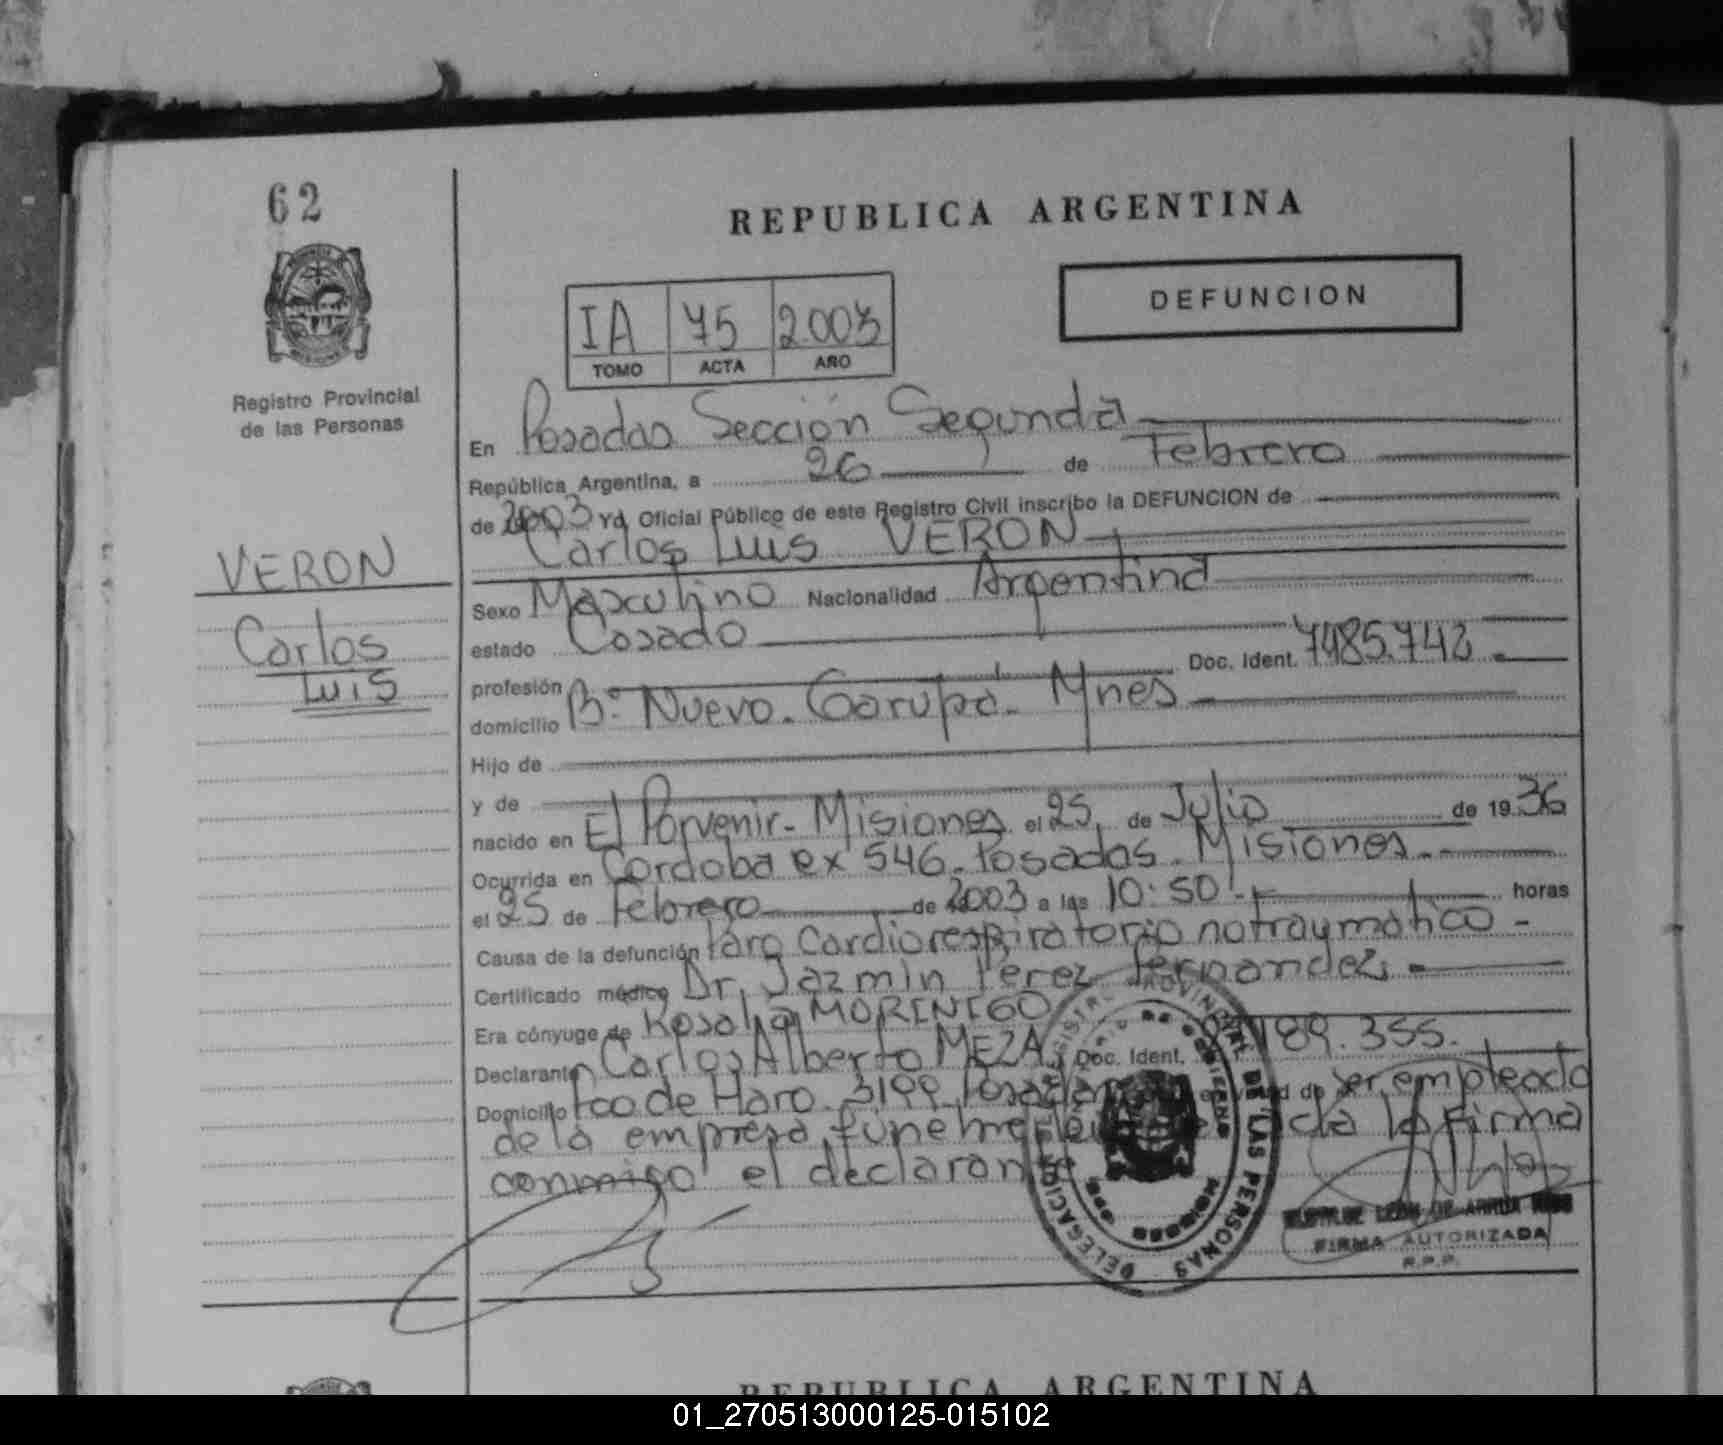 62
REPUBLICA ARGENTINA
DEFUNCION
IA 75 2.003
TOMO ACTA AÑO
Registro Provincial
de las Personas
En Posadas Sección Segunda
República Argentina, a 26 de Febrero
de 2003 Yo, Oficial Público de este Registro Civil inscribo la DEFUNCION de
Carlos Luis VERON
VERON
Carlos
Luis
Sexo Masculino Nacionalidad Argentina
estado Casado
Doc. Ident. 7485.742.
profesión
domicilio B° Nuevo. Garupá. Mnes
Hijo de
y de
nacido en El Porvenir - Misiones el 25 de Julio de 1936
Ocurrida en Cordoba ex 546. Posadas. Misiones.
el 25 de Febrero de 2003 a las 10:50 horas
Causa de la defunción Paro Cardiorespiratorio no traumatico -
Certificado médico Dr. Jazmin Perez Fernandez
Era cónyuge de Rosalia MORINIGO
Declarante Carlos Alberto MEZA Doc. Ident. 189.355.
Domicilio Fco de Haro. 3199 Posadas ser empleado
de la empresa funebre la firma
conmigo el declarante
DELEGACION REGISTRO PROVINCIAL DE LAS PERSONAS
LEON DE ARRUA
FIRMA AUTORIZADA
R.P.P.
REPUBLICA ARGENTINA
01_270513000125-015102